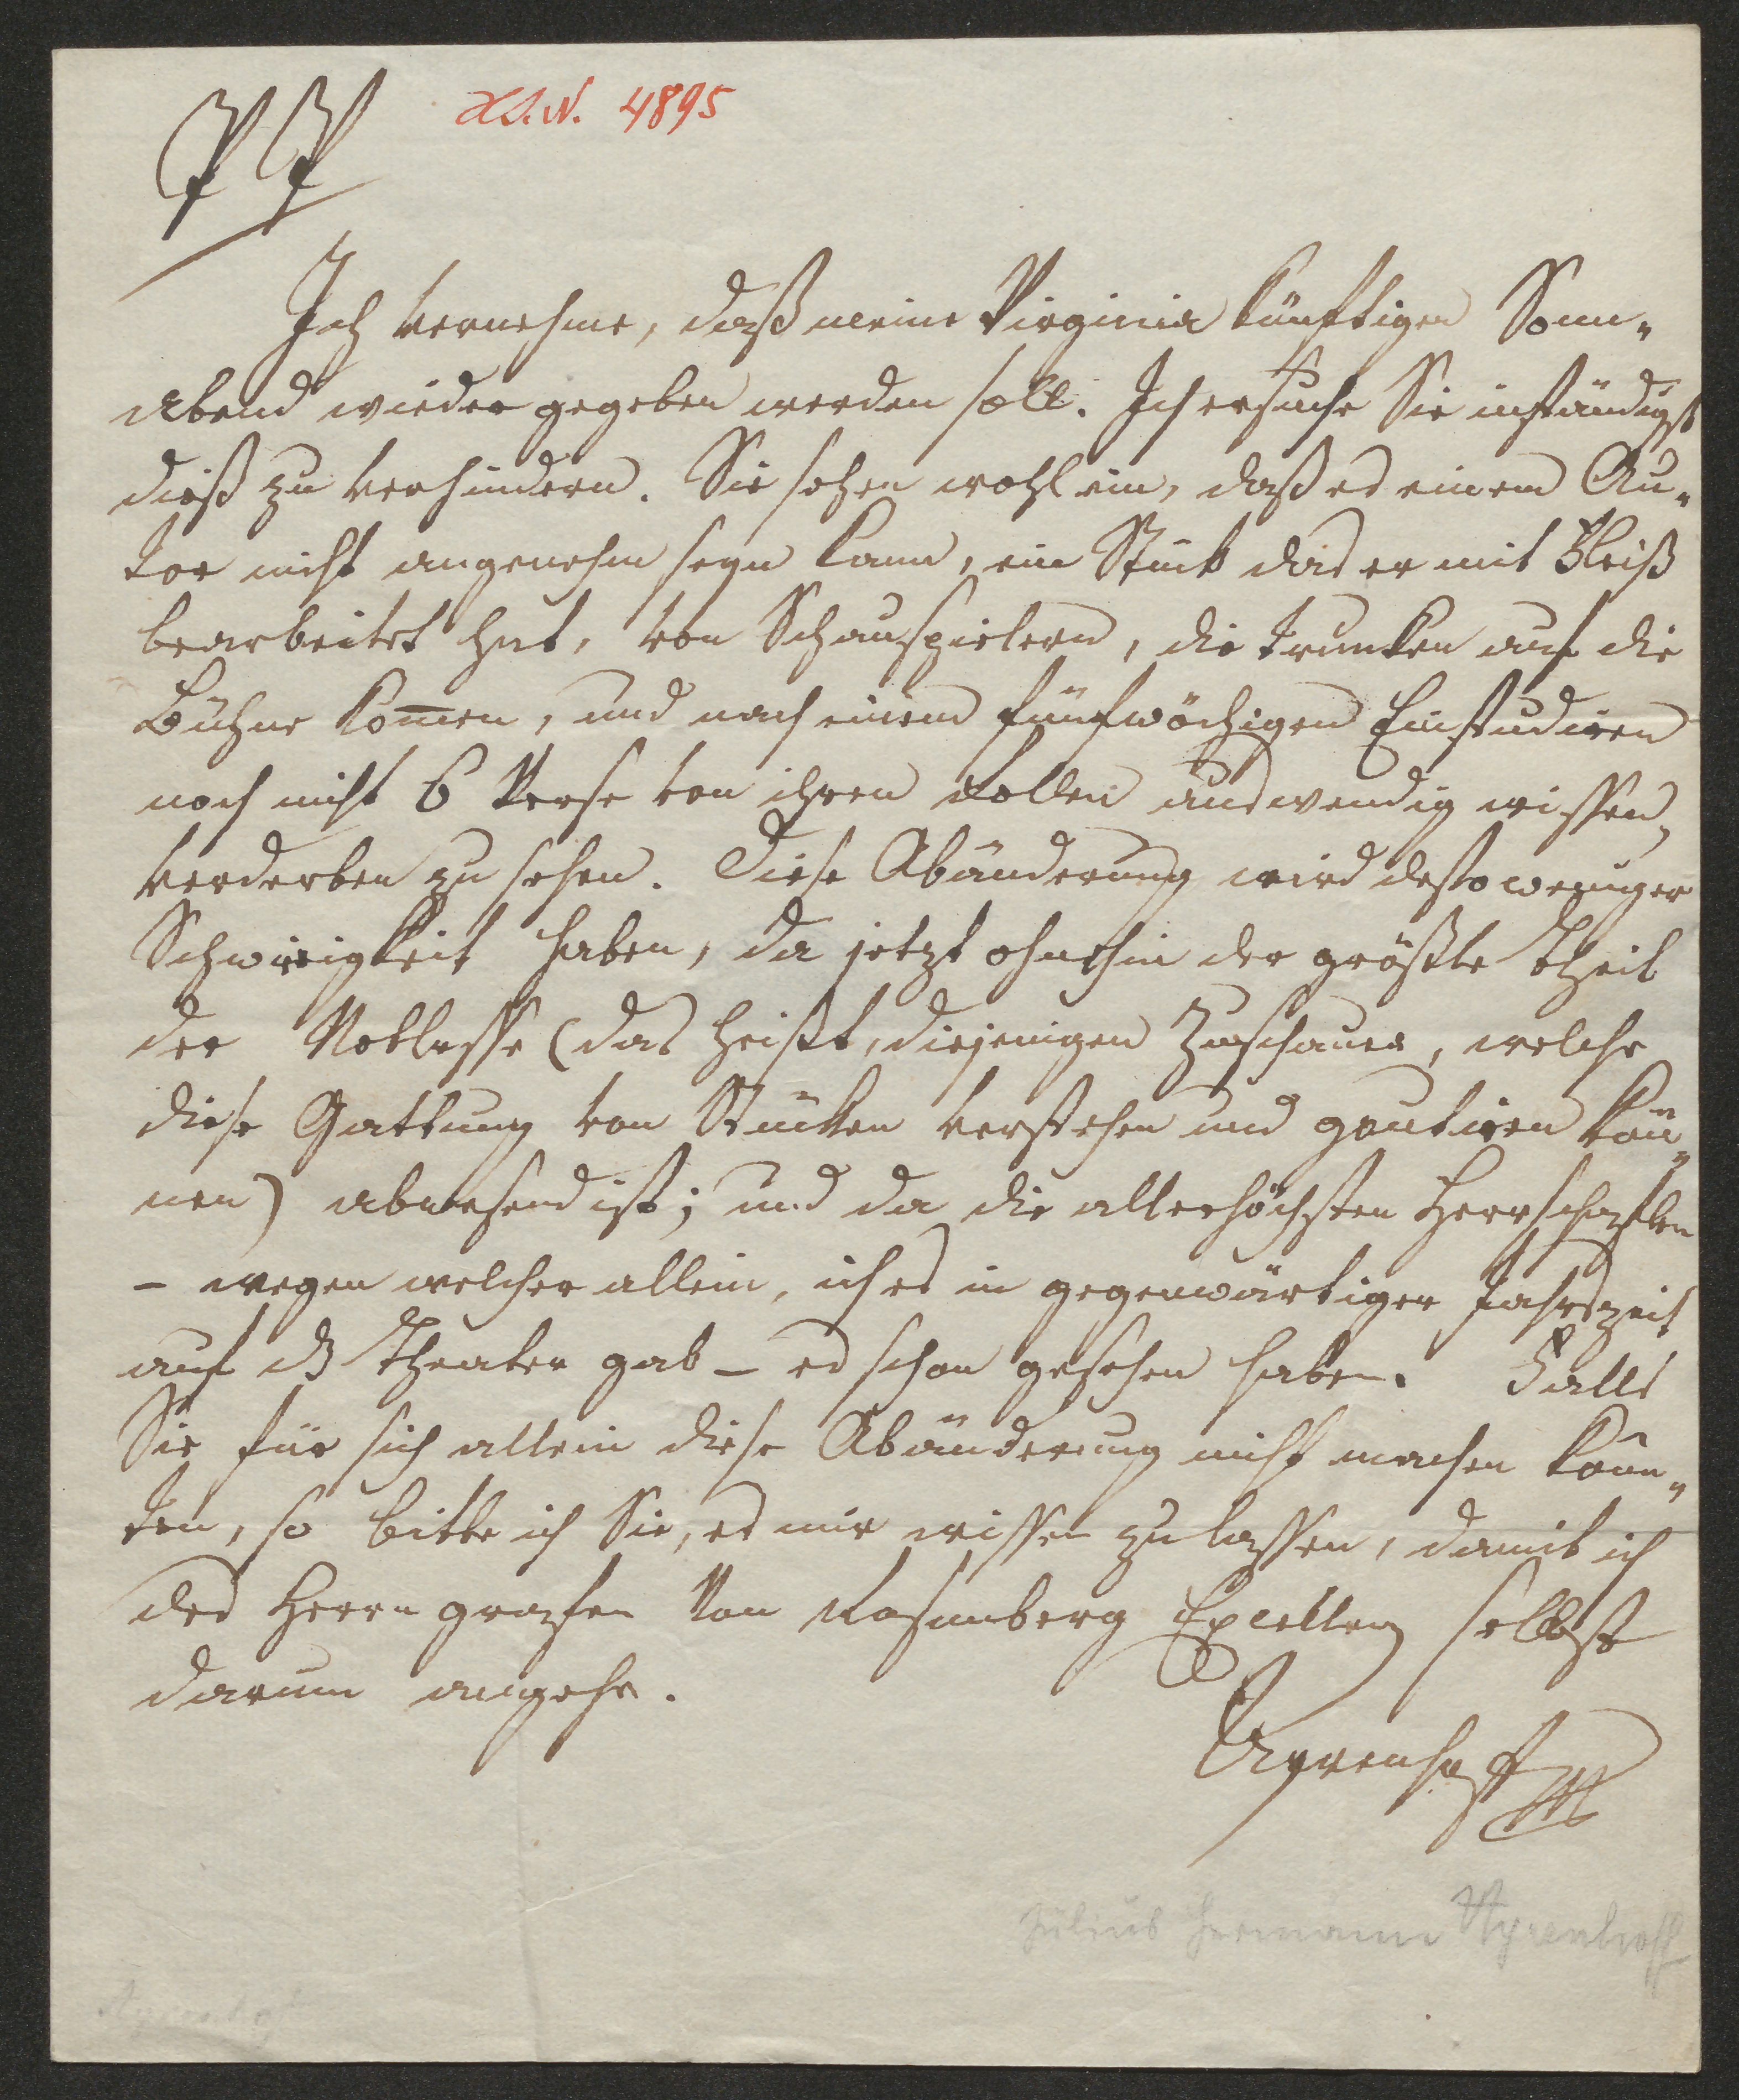 PP
H.I.N. 4895
Ich vernehme, daß meine Virginia künftigen Sonn„
abend wieder gegeben werden soll. Ich ersuche Sie inständigst
dieß zu verhindern. Sie sehen wohl ein, daß es einem Au„
tor nicht angenehm seyn kann, ein Stück das er mit Fleiß
bearbeitet hat, von Schauspielern, die trunken auf die
Bühne kom̅en, und nach einem fünfwöchigen Einstudiren
noch nicht 6 Verse von ihren Rollen auswendig wissen,
verderben zu sehen. Diese Abänderung wird desto weniger
Schwirigkeit haben, da jetzt ohnehin der größte Theil
der Noblesse (das heißt, diejenigen Zuschauer, welche
diese Gattung von Stücken verstehen und goutiren kön„
nen) abwesend ist; und da die allerhöchsten Herrschaften
– wegen welcher allein, ich es in gegenwärtiger Jahrszeit
auf's Theater gab – es schon gesehen haben. Falls
Sie für sich allein diese Abänderung nicht machen könn„
ten, so bitte ich Sie, es mir wissen zu lassen, damit ich
des Herrn grafen Von Rosenberg Excellenz selbst
darum angehe.
Ayrenhoff
Julius Hermann Ayrenhoff